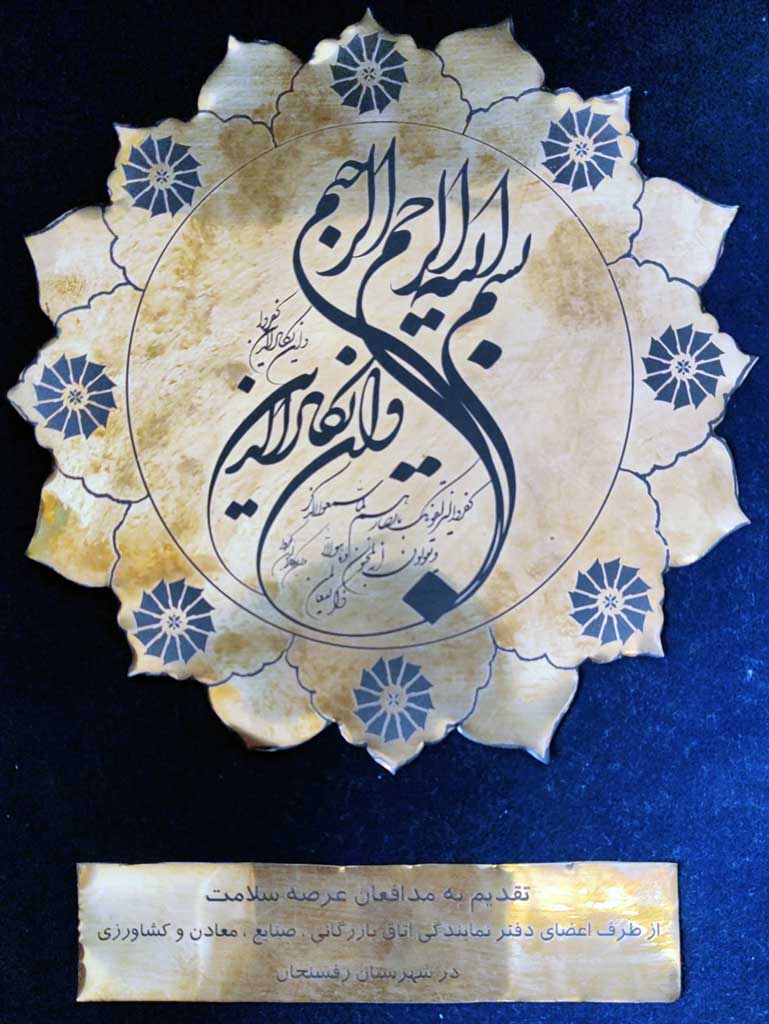 بسم الله الرحمن الرحیم
وان یکاد الذین کفروا
وان یکاد الذین
کفروا لیزلقونک بابصارهم لما سمعوا الذکر
و یقولون انه لمجنون و ما هو الا
ذکر للعالمین
تقدیم به مدافعان عرصه سلامت
از طرف اعضای دفتر نمایندگی اتاق بازرگانی ، صنایع ، معادن و کشاورزی
در شهرستان رفسنجان